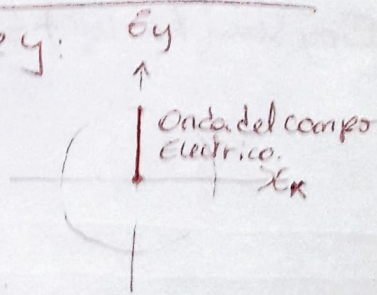 y: Ey
Onda del campo
Electrico.